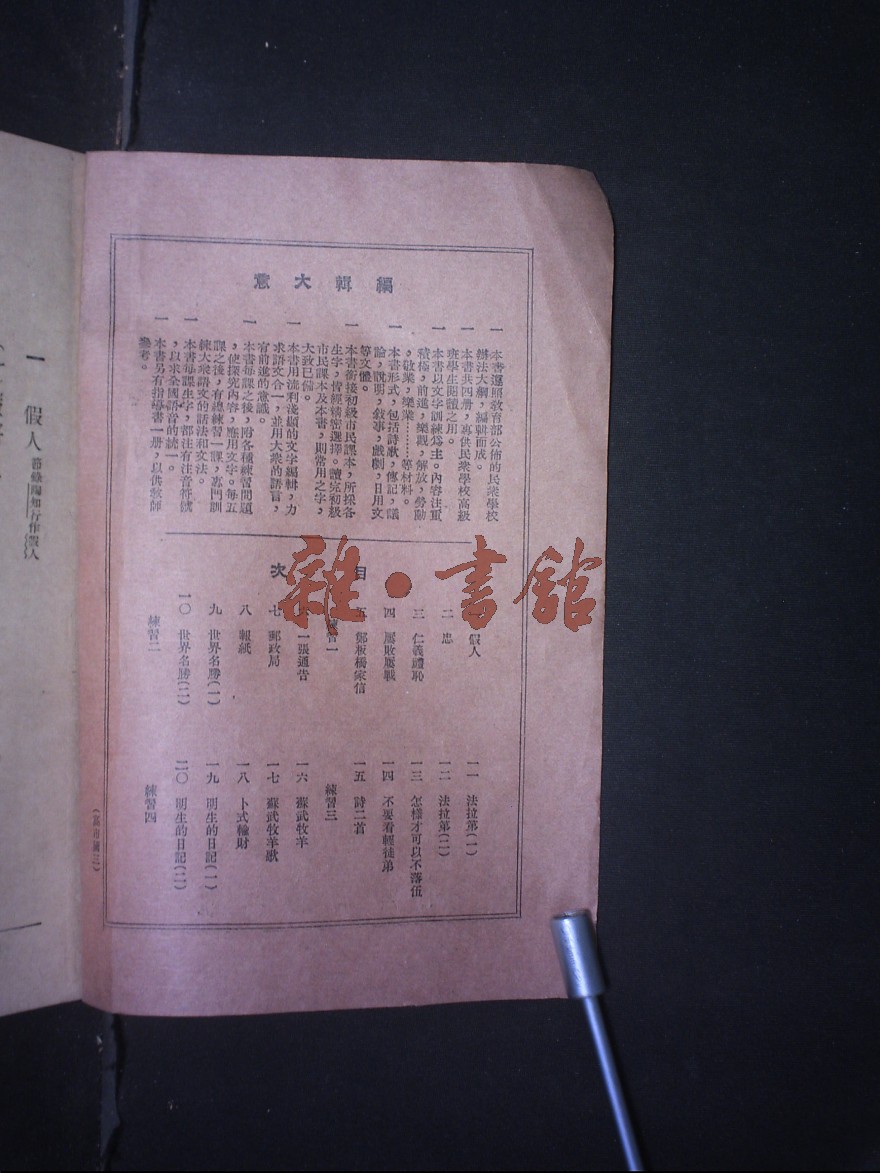 編輯大意
一 本書遵照教育部公佈的民衆學校
辦法大綱，編輯而成。
一 本書共四册，專供民衆學校高級
班學生閱讀之用。
一 本書以文字訓練爲主。內容注重
積極，前進，樂觀，解放，勞動
，敬業，樂業………等材料。
一 本書形式，包括詩歌，傳記，議
論，說明，敍事，戲劇，日用文
等文體。
一 本書銜接初級市民課本，所採各
生字，皆經精密選擇。讀完初級
市民課本及本書，則常用之字，
大致已備。
一 本書用流利淺顯的文字編輯，力
求語文合一，並用大衆的語言，
官前進的意識。
一 本書每課之後，附各種練習問題
，使探究內容，應用文字。每五
課之後，有總練習一課，專門訓
練大衆語文的語法和文法。
一 本書每課生字，都注有注音符號
，以求全國語音的統一。
一 本書另有指導書一册，以供教師
參考。
目次
一 假人
二 忠
三 仁義禮恥
四 屢敗屢戰
五 鄭板橋家信
練習一
六 一張通告
七 郵政局
八 報紙
九 世界名勝(一)
一〇 世界名勝(二)
練習二
一一 法拉第(一)
一二 法拉第(二)
一三 怎樣才可以不落伍
一四 不要看輕徒弟
一五 詩二首
練習三
一六 蘇武牧羊
一七 蘇武牧羊歌
一八 卜式輸財
一九 明生的日記(一)
二〇 明生的日記(二)
練習四
(高市國三)
一 假人 節錄陶知行作假人
雜·書館